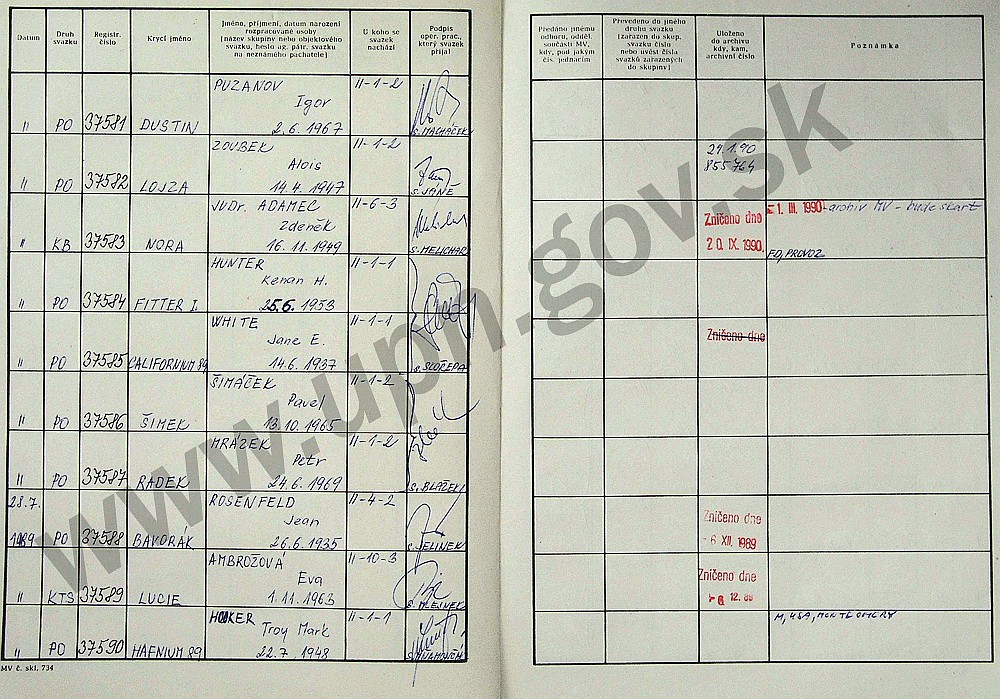 Datum
Druh svazku
Registr. číslo
Krycí jméno
Jméno, příjmení, datum narození
rozpracované osoby
(název skupiny nebo objektového
svazku, heslo ag. pátr. svazku
na neznámého pachatele)
U koho se svazek nachází
Podpis
oper. prac.,
který svazek
přijal
Předáno jinému
odboru, odděl.
součásti MV,
kdy, pod jakým
čís. jednacím
Převedeno do jiného
druhu svazku
(zařazen do skup.
svazku číslo
nebo uvést čísla
svazků zařazených
do skupiny)
Uloženo
do archivu
kdy, kam,
archivní číslo
Poznámka
PUZANOV II-1-2
Igor
" PO 37581 DUSTIN 2.6.1967 S. MACHÁČEK
ZOUBEK II-1-2 29.1.90
Alois 855764
" PO 37582 LOJZA 14.4.1947 S. JÁNĚ
JUDr. ADAMEC II-6-3 1. III. 1990 - archiv MV - bude skart
Zdeněk Zničeno dne
" KB 37583 NORA 16.11.1949 S. MELICHAR 20. IX. 1990. FO, PROVOZ
HUNTER II-1-1
Kenan H.
" PO 37584 FITTER I. 25.6.1953
WHITE II-1-1 Zničeno dne
Jane E.
" PO 37585 CALIFORNIUM 89 14.6.1937 S. SLOŘEPA
ŠIMÁČEK II-1-2
Pavel
" PO 37586 ŠIMEK 13.10.1965
MRÁZEK II-1-2
Petr
" PO 37587 RADEK 24.6.1969 S. BLAŽEK
28.7. ROSENFELD II-4-2 Zničeno dne
Jean
1989 PO 37588 BAVORÁK 26.6.1935 S. JELINEK -6 XII. 1989
AMBROŽOVÁ II-10-3 Zničeno dne
Eva
" KTS 37589 LUCIE 1.11.1963 S. HLEJNEK 6 12. 89
HOOKER II-1-1 M, USA, MONTGOMERY
Troy Mark
" PO 37590 HAFNIUM 89 22.7.1948
MV č. skl. 734
www.upn.gov.sk